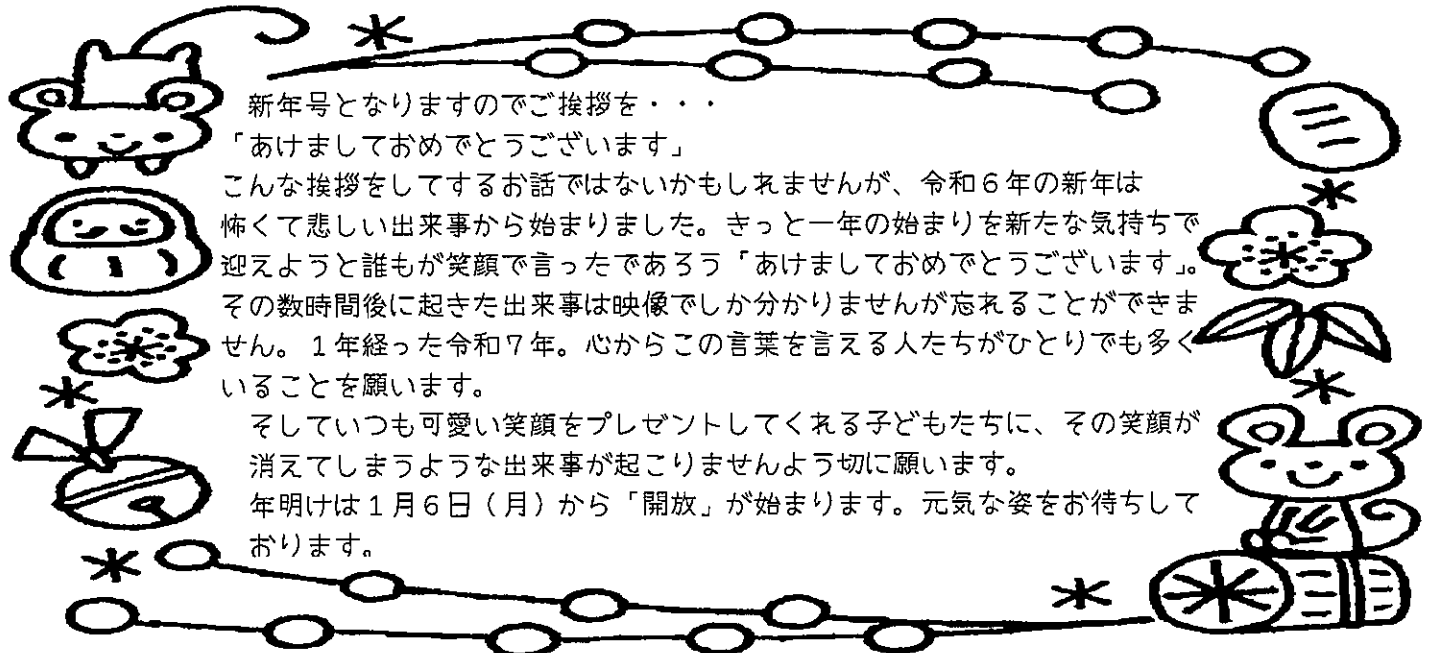 新年号となりますのでご挨拶を・・・
「あけましておめでとうございます」
こんな挨拶をしてするお話ではないかもしれませんが、令和６年の新年は
怖くて悲しい出来事から始まりました。きっと一年の始まりを新たな気持ちで
迎えようと誰もが笑顔で言ったであろう「あけましておめでとうございます」。
その数時間後に起きた出来事は映像でしか分かりませんが忘れることができま
せん。１年経った令和７年。心からこの言葉を言える人たちがひとりでも多く
いることを願います。
そしていつも可愛い笑顔をプレゼントしてくれる子どもたちに、その笑顔が
消えてしまうような出来事が起こりませんよう切に願います。
年明けは１月６日（月）から「開放」が始まります。元気な姿をお待ちして
おります。